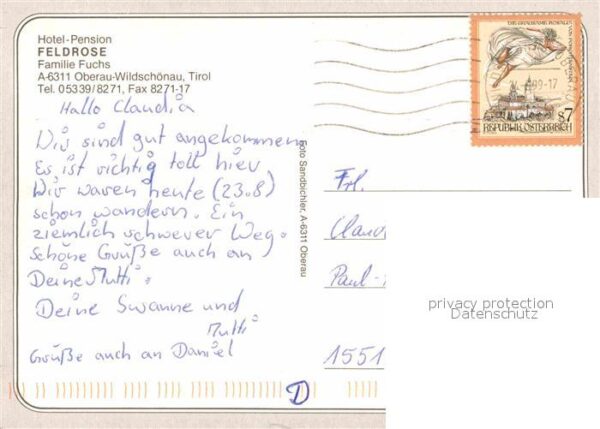 Hotel-Pension
FELDROSE
Familie Fuchs
A-6311 Oberau-Wildschönau, Tirol
Tel. 05339/8271, Fax 8271-17
Hallo Claudia
Wir sind gut angekommen
Es ist richtig toll hier
Wir waren heute (23.8)
schon wandern. Ein
ziemlich schwerer Weg.
Schöne Grüße auch an
Deine Mutti.
Deine Susanne und
Mutti
Grüße auch an Daniel
Foto Sandbichler, A-6311 Oberau
99-17
s7
REPUBLIK ÖSTERREICH
Frl.
Claud
Paul-
1551
D
privacy protection
Datenschutz